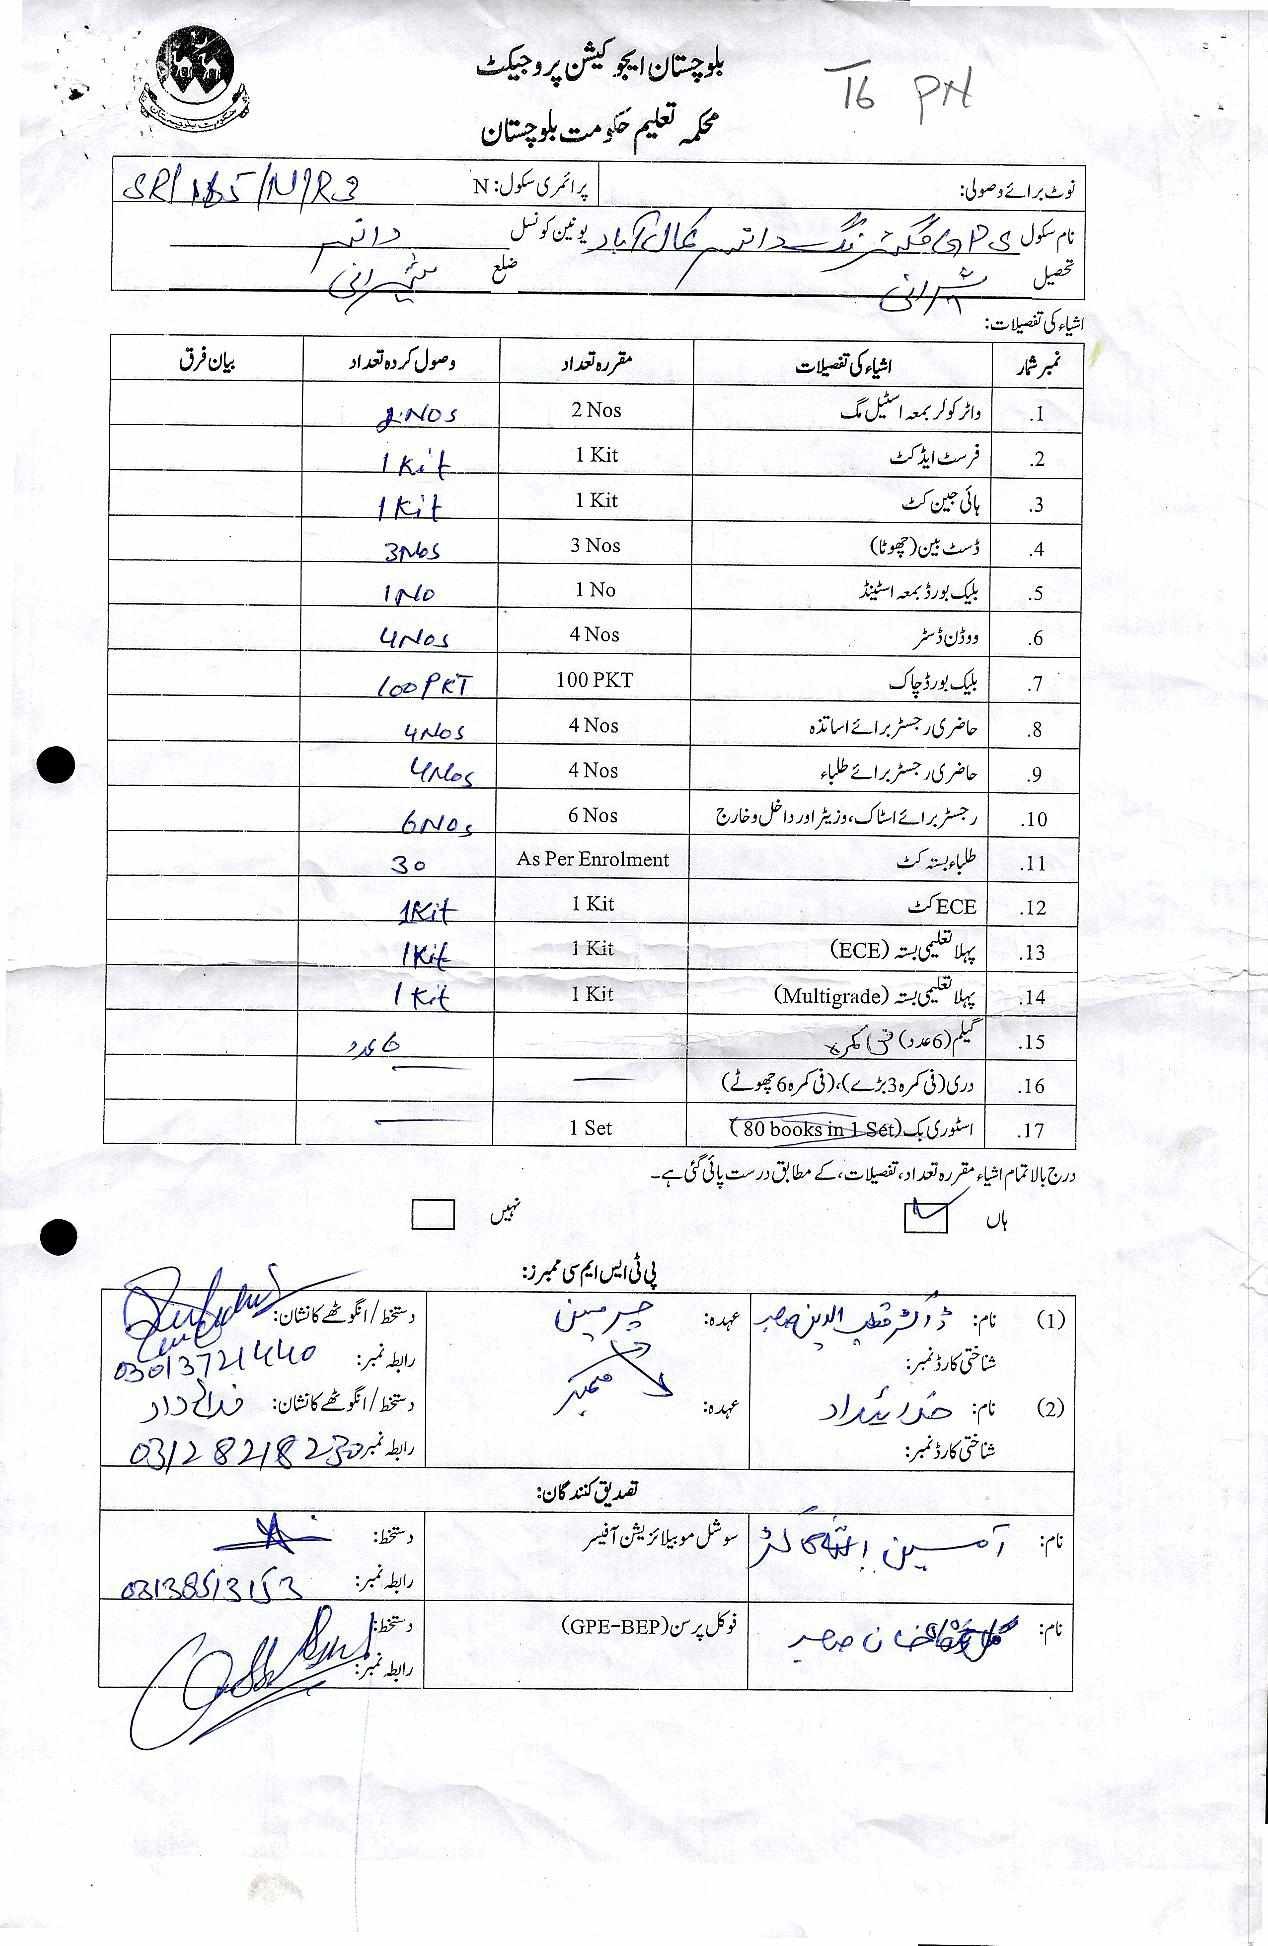 بلوچستان ایجوکیشن پروجیکٹ
16 PN
محکمہ تعلیم حکومت بلوچستان
نوٹ برائے وصولی: پرائمری سکول: N SR/165/N/R3
نام سکول یونین کونسل
تحصیل شیرانی ضلع شیرانی
اشیاء کی تفصیلات:
نمبر شمار اشیاء کی تفصیلات مقررہ تعداد وصول کردہ تعداد بیان فرق
1. واٹر کولر بمعہ اسٹیل مگ 2 Nos 2 Nos
2. فرسٹ ایڈ کٹ 1 Kit 1 Kit
3. ہائی جین کٹ 1 Kit 1 Kit
4. ڈسٹ بین (چھوٹا) 3 Nos 3 Nos
5. بلیک بورڈ بمعہ اسٹینڈ 1 No 1 No
6. ووڈن ڈسٹر 4 Nos 4 Nos
7. بلیک بورڈ چاک 100 PKT 100 PKT
8. حاضری رجسٹر برائے اساتذہ 4 Nos 4 Nos
9. حاضری رجسٹر برائے طلباء 4 Nos 4 Nos
10. رجسٹر برائے اسٹاک، وزیٹر اور داخل و خارج 6 Nos 6 Nos
11. طلباء بستہ کٹ As Per Enrolment 30
12. ECE کٹ 1 Kit 1 Kit
13. پہلا تعلیمی بستہ (ECE) 1 Kit 1 Kit
14. پہلا تعلیمی بستہ (Multigrade) 1 Kit 1 Kit
15. گیلم (6 عدد) فی کمرہ 6 عدد
16. دری (فی کمرہ 3 بڑے)، (فی کمرہ 6 چھوٹے) —
17. اسٹوری بک (80 books in 1 Set) 1 Set —
درج بالا تمام اشیاء مقررہ تعداد، تفصیلات، کے مطابق درست پائی گئی ہے۔
ہاں ✓ نہیں
پی ٹی ایس ایم سی ممبرز:
(1) نام: ڈاکٹر قطب الدین صاحب عہدہ: چیرمین دستخط/انگوٹھے کا نشان:
شناختی کارڈ نمبر: رابطہ نمبر: 03013721440
(2) نام: خدائیداد عہدہ: ممبر دستخط/انگوٹھے کا نشان:
شناختی کارڈ نمبر: رابطہ نمبر: 03128218230
تصدیق کنندگان:
نام: سوشل موبیلائزیشن آفیسر دستخط:
رابطہ نمبر: 03138513153
نام: فوکل پرسن (GPE-BEP) دستخط:
رابطہ نمبر: